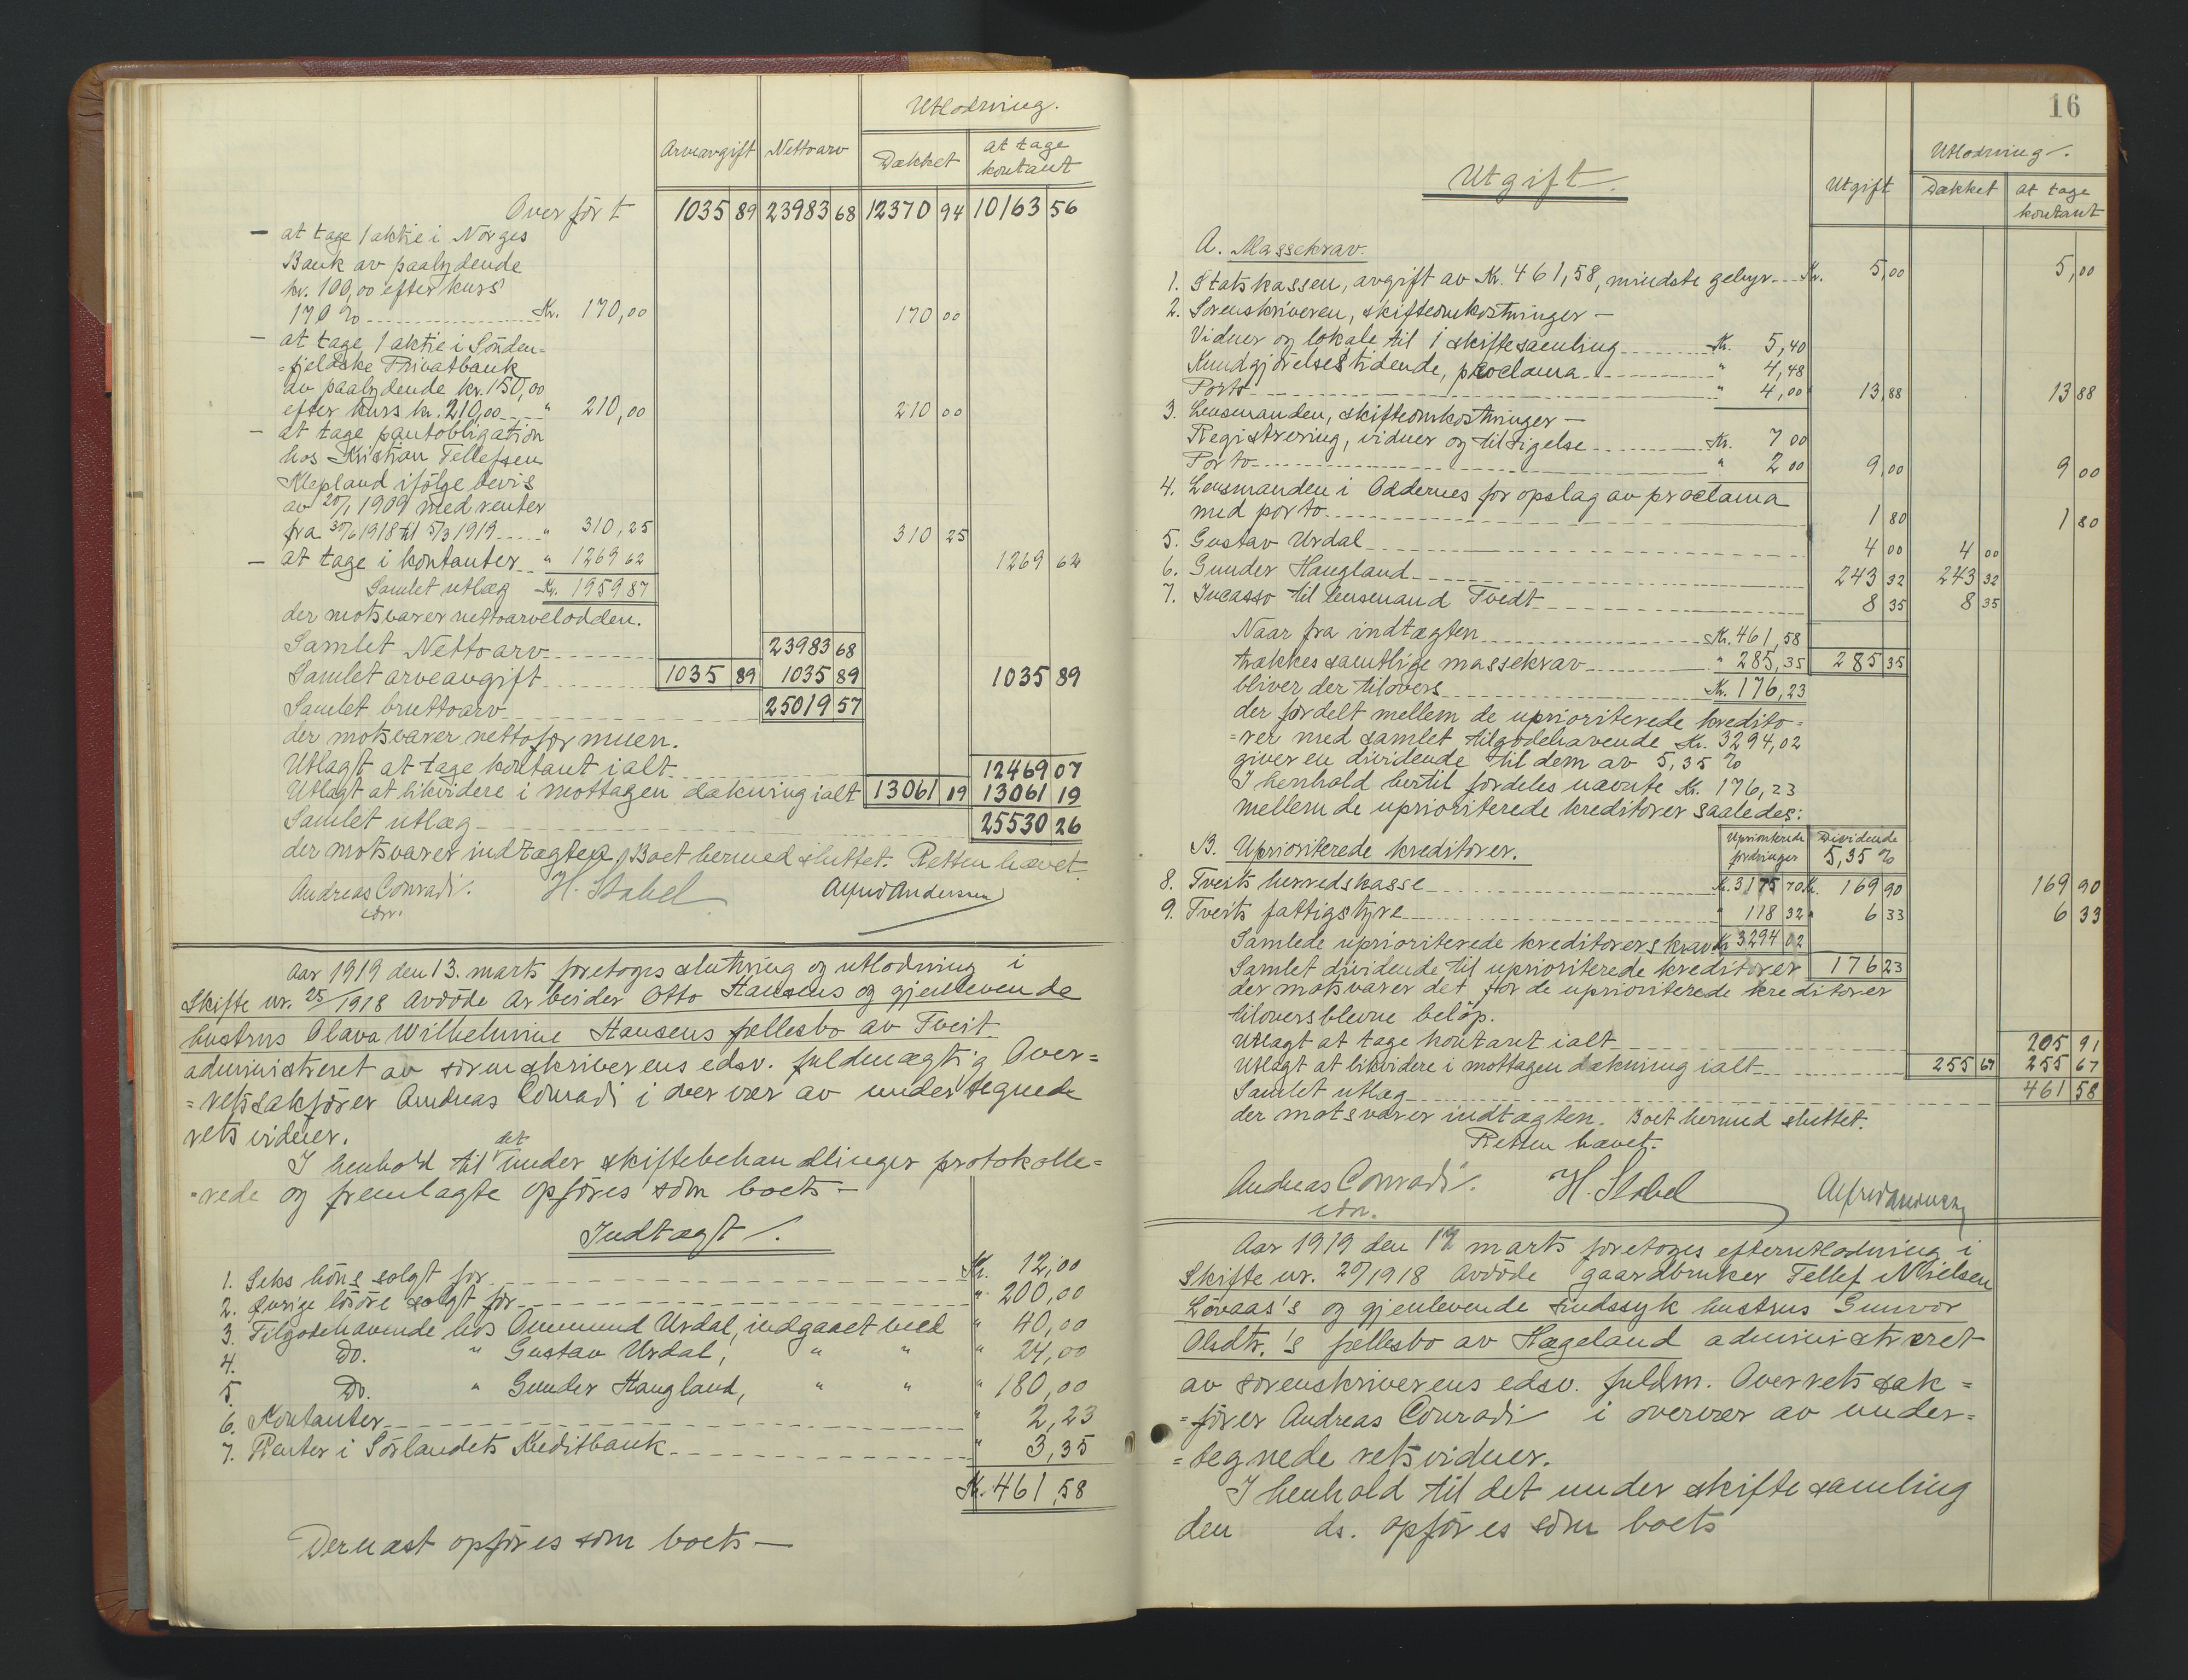 Utlodning.
Arveavgift Nettoarv Dækket at tage kontant
Overført 1035 89 23983 68 12370 94 10163 56
— at tage 1 aktie i Norges
Bank av paalydende
kr. 100,00 efter kurs
170 % Kr. 170,00 170 00
— at tage 1 aktie i Sönden=
=fjeldske Privatbank
av paalydende kr. 150,00
efter kurs kr. 210,00 " 210,00 210 00
— at tage pantobligation
hos Kristian Tellefsen
Klepland ifölge bevis
av 20/1 1909 med renter
fra 30/6 1918 til 5/3 1919 " 310,25 310 25
— at tage i kontanter " 1269 62 1269 62
Samlet utlæg Kr. 1959 87
der motsvarer nettoarvelodden.
Samlet Nettoarv 23983 68
Samlet arveavgift 1035 89 1035 89 1035 89
Samlet bruttoarv 25019 57
der motsvarer nettoformuen.
Utlagt at tage kontant ialt 12469 07
Utlagt at likvidere i mottagen dækning ialt 13061 19 13061 19
Samlet utlæg 25530 26
der motsvarer indtægten. Boet hermed sluttet. Retten hævet.
Andreas Conradi. H. Stabel Alfred Andersen
edsv.
Aar 1919 den 13. marts foretoges slutning og utlodning i
Skifte nr. 25/1918 Avdöde Arbeider Otto Hansens og gjenlevende
hustrus Olava Wilhelmine Hansens fællesbo av Tveit
administreret av sorenskriverens edsv. fuldmægtig Over=
=retssakfører Andreas Conradi i overvær av undertegnede
retsvidner.
I henhold til det under skiftebehandlingen protokolle=
=rede og fremlagte opföres som boets —
Indtægt.
1. Seks höns solgt for Kr. 12,00
2. Övrige lösöre solgt for " 200,00
3. Tilgodehavende hos Ommund Urdal, indgaaet med " 40,00
4. Do. " Gustav Urdal, " " " 24,00
5. Do. " Gunder Haugland, " " " 180,00
6. Kontanter " 2,23
7. Renter i Sörlandets Kreditbank " 3,35
Kr. 461,58
Dernæst opföres som boets —
16
Utgift.
Utlodning.
Utgift Dækket at tage kontant
A. Massekrav.
1. Statskassen, avgift av Kr. 461,58, mindste gebyr Kr. 5,00 5,00
2. Sorenskriveren, skifteomkostninger —
Vidner og lokale til 1 skiftesamling Kr. 5,40
Kundgjörelsestidende, proclama " 4,48
Porto " 4,00 13,88 13 88
3. Lensmanden, skifteomkostninger —
Registrering, vidner og tilsigelse Kr. 7 00
Porto " 2 00 9,00 9 00
4. Lensmanden i Oddernes for opslag av proclama
med porto 1 80 1 80
5. Gustav Urdal 4 00 4 00
6. Gunder Haugland 243 32 243 32
7. Incasso til lensmand Tvedt 8 35 8 35
Naar fra indtægten Kr. 461,58
trækkes samtlige massekrav " 285,35 285 35
bliver der tilovers Kr. 176,23
der fordelt mellem de uprioriterede kredito=
=rer med samlet tilgodehavende Kr. 3294,02
giver en dividende til dem av 5,35 %
I henhold hertil fordeles nævnte Kr. 176,23
mellem de uprioriterede kreditorer saaledes:
B. Uprioriterede kreditorer. Uprioriterede fordringer Dividende 5,35 %
8. Tveits herredskasse Kr. 3175 70 Kr. 169 90 169 90
9. Tveits fattigstyre " 118 32 " 6 33 6 33
Samlede uprioriterede kreditorers krav Kr 3294 02
Samlet dividende til uprioriterede kreditorer 176 23
der motsvarer det for de uprioriterede kreditorer
tiloversblevne belöp.
Utlagt at tage kontant ialt 205 91
Utlagt at likvidere i mottagen dækning ialt 255 67 255 67
Samlet utlæg 461 58
der motsvarer indtægten. Boet hermed sluttet.
Retten hævet.
Andreas Conradi. H. Stabel Alfred Andersen
edsv.
Aar 1919 den 17 marts foretoges efterutlodning i
Skifte nr. 20/1918 Avdöde gaardbruker Tellef Nielsen
Lövaas's og gjenlevende sindssyk hustrus Gunvor
Olsdtr.'s fællesbo av Hægeland administreret
av sorenskriverens edsv. fuldm. Overretssak=
=förer Andreas Conradi i overvær av under=
=tegnede retsvidner.
I henhold til det under skiftesamling
den ds. opföres som boets